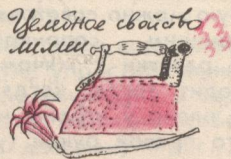 Целебное свойство
лилии